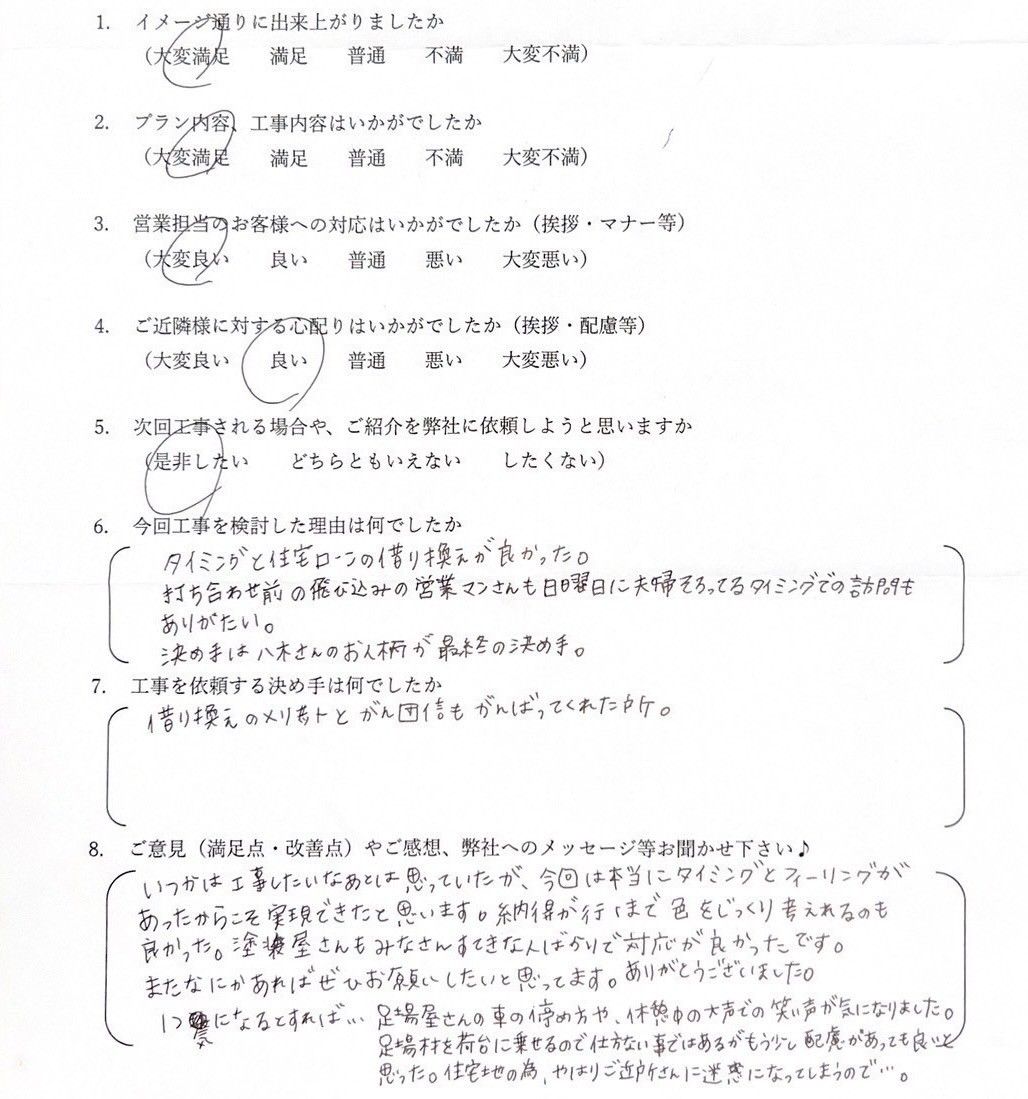 1. イメージ通りに出来上がりましたか
(大変満足 満足 普通 不満 大変不満)
2. プラン内容、工事内容はいかがでしたか
(大変満足 満足 普通 不満 大変不満)
3. 営業担当のお客様への対応はいかがでしたか（挨拶・マナー等）
(大変良い 良い 普通 悪い 大変悪い)
4. ご近隣様に対する心配りはいかがでしたか（挨拶・配慮等）
(大変良い 良い 普通 悪い 大変悪い)
5. 次回工事される場合や、ご紹介を弊社に依頼しようと思いますか
(是非したい どちらともいえない したくない)
6. 今回工事を検討した理由は何でしたか
タイミングと住宅ローンの借り換えが良かった。
打ち合わせ前の飛び込みの営業マンさんも日曜日に夫婦そろってるタイミングでの訪問も
ありがたい。
決め手は八木さんのお人柄が最終の決め手。
7. 工事を依頼する決め手は何でしたか
借り換えのメリットとがん団信もがんばってくれた所。
8. ご意見（満足点・改善点）やご感想、弊社へのメッセージ等お聞かせ下さい♪
いつかは工事したいなあとは思っていたが、今回は本当にタイミングとフィーリングが
あったからこそ実現できたと思います。納得が行くまで色をじっくり考えれるのも
良かった。塗装屋さんもみなさんすてきな人ばかりで対応が良かったです。
またなにかあればぜひお願いしたいと思ってます。ありがとうございました。
1つ気になるとすれば… 足場屋さんの車の停め方や、休憩中の大声での笑い声が気になりました。
足場材を荷台に乗せるので仕方ない事ではあるがもう少し配慮があっても良いと
思った。住宅地の為、やはりご近所さんに迷惑になってしまうので…。